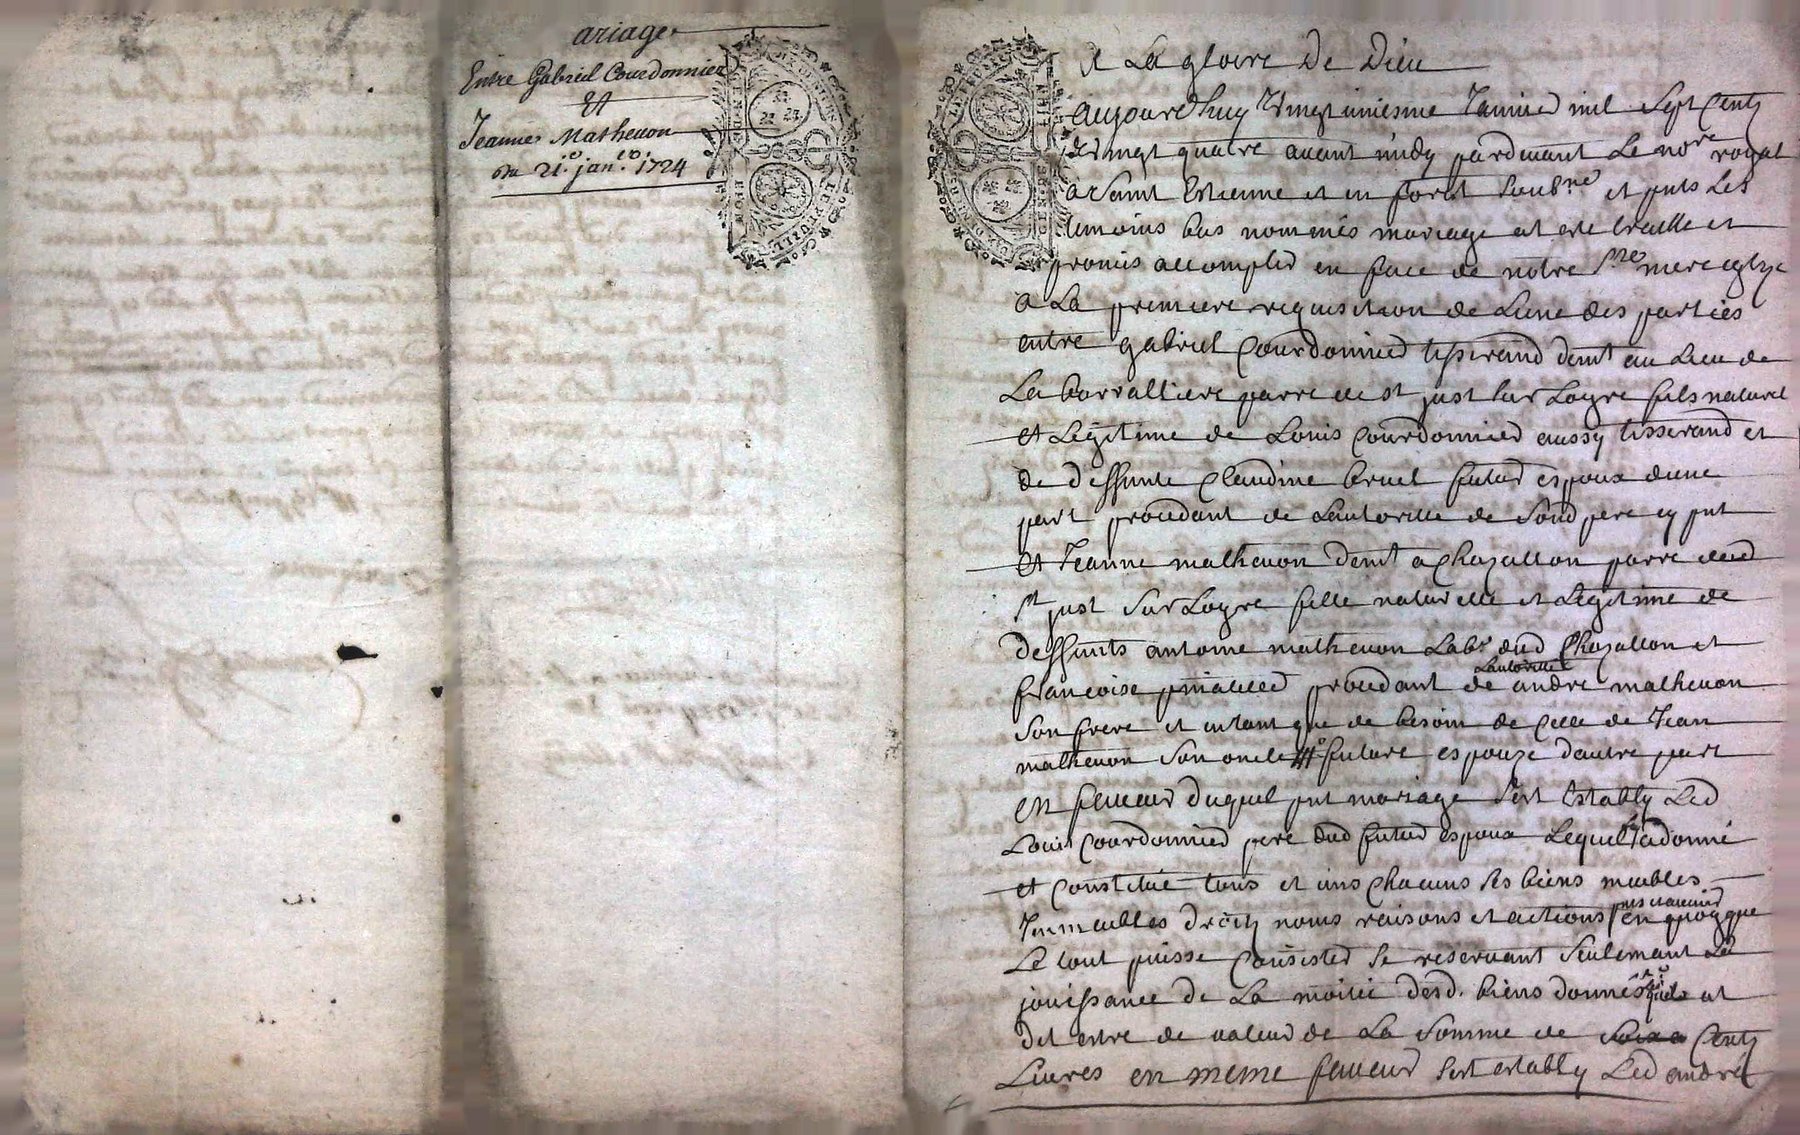 ariage
Entre Gabriel Courdonnier
Et
Jeanne Matheuon
Du 21.e jan.er 1724
A La gloire De Dieu
aujourdhuy Vingt uniesme Januier mil Sept Centz
Vingt quatre auant midy pardeuant Le nore royal
a Saint Estienne et en forest Soubne et pnts Les
temoins bas nommés mariage at esté traitté et
promis accomplir en face de notre Ste mere eglize
a La premiere requisition de Lune des parties
entre gabriel Courdonnier tisserand demt au Lieu de
La barralliere parre de St just Sur Loyre fils naturel
et Legitime de Louis Courdonnier aussy tisserand et
de deffunte Claudine bruel futur espoux dune
part procedant de Lautorité de Sond pere cy pnt
et Jeanne matheuon demt a Chazallon parre dud
St just Sur Loyre fille naturelle et Legitime de
deffunts antoine matheuon Labr dud Chazallon et
francoise procedant de Lautorité andre matheuon
Son frere et entant que de besoin de Celle de Jean
matheuon Son oncle future espouze dautre part
en faueur duquel pnt mariage Sest Estably Led
Louis Courdonnier pere dud futur espoux Lequel Luy a donné
et Constitué tous et uns Chacuns Ses biens meubles
Immeubles droitz noms raisons et actions pnts et auenir en quoy que
Le tout puisse Consister Se reseruant Seulemant La
jouissance de La moitié desd. biens donnés at
dit estre de valeur de La Somme de Centz
Liures en meme faueur Sest estably Led andré